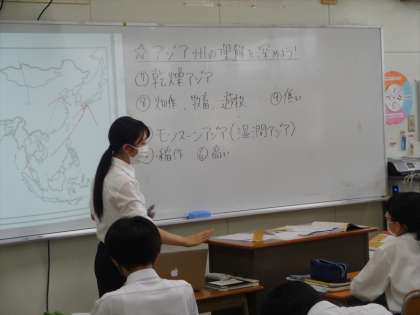 ☆アジア州の理解を深めよう!
⑦乾燥アジア
⑧畑作、牧畜、遊牧 ④低い
モンスーンアジア(湿潤アジア)
稲作 ⑥高い